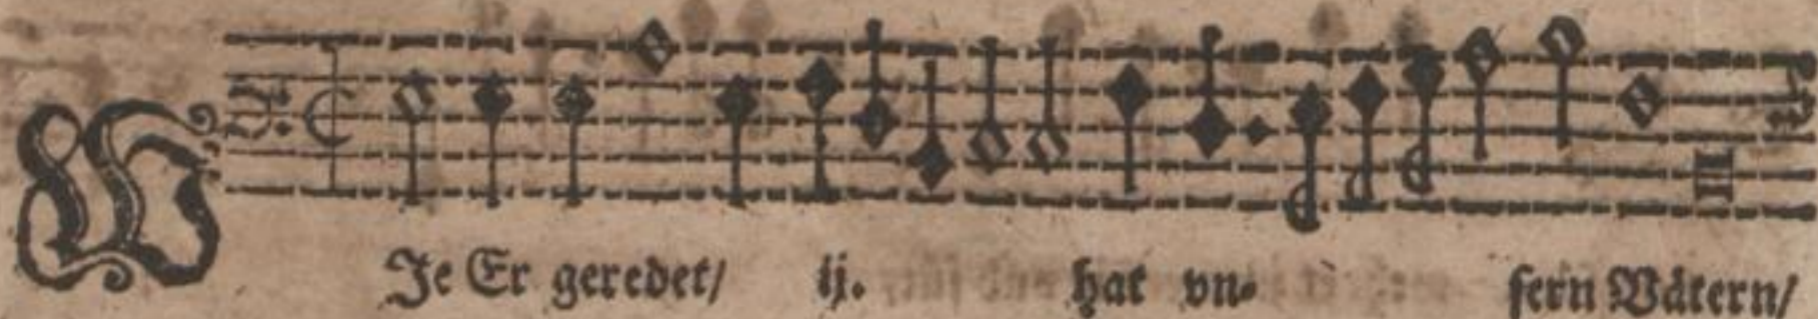 WJe Er geredet/ ij. hat vn- sern Vätern/